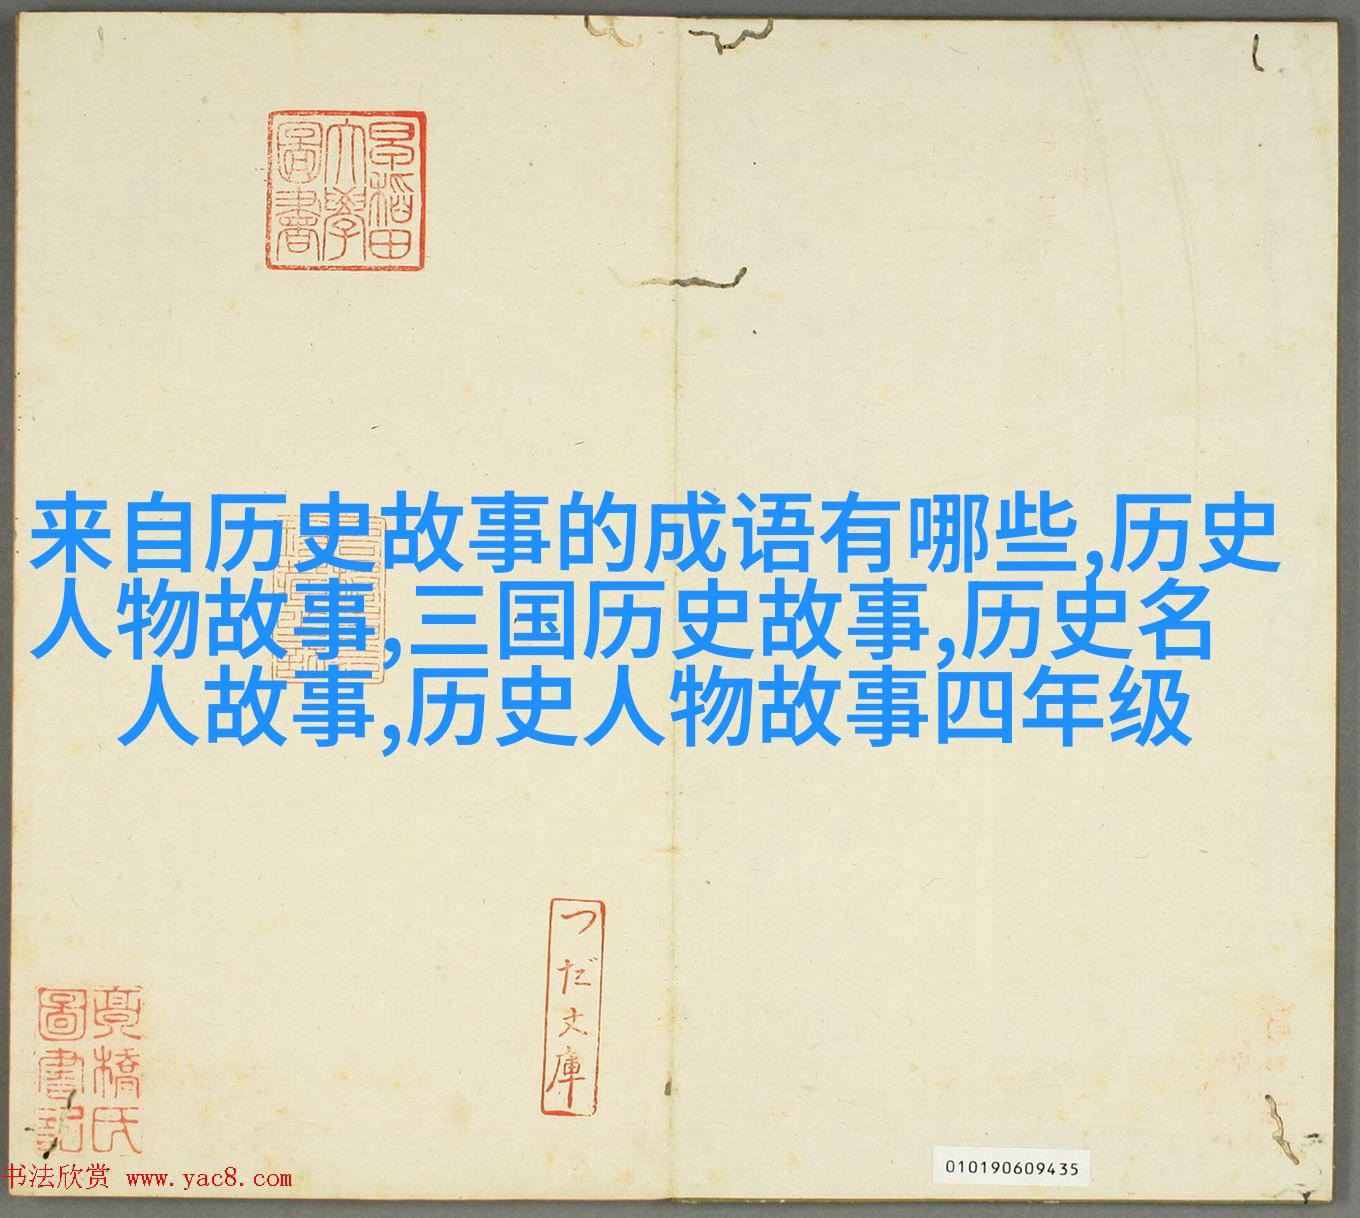 早稻田
大學
圖書
来自历史故事的成语有哪些,历史
人物故事,三国历史故事,历史名
人故事,历史人物故事四年级
つだ文庫
圖書記
書法欣赏 www.yac8.com
010190609435